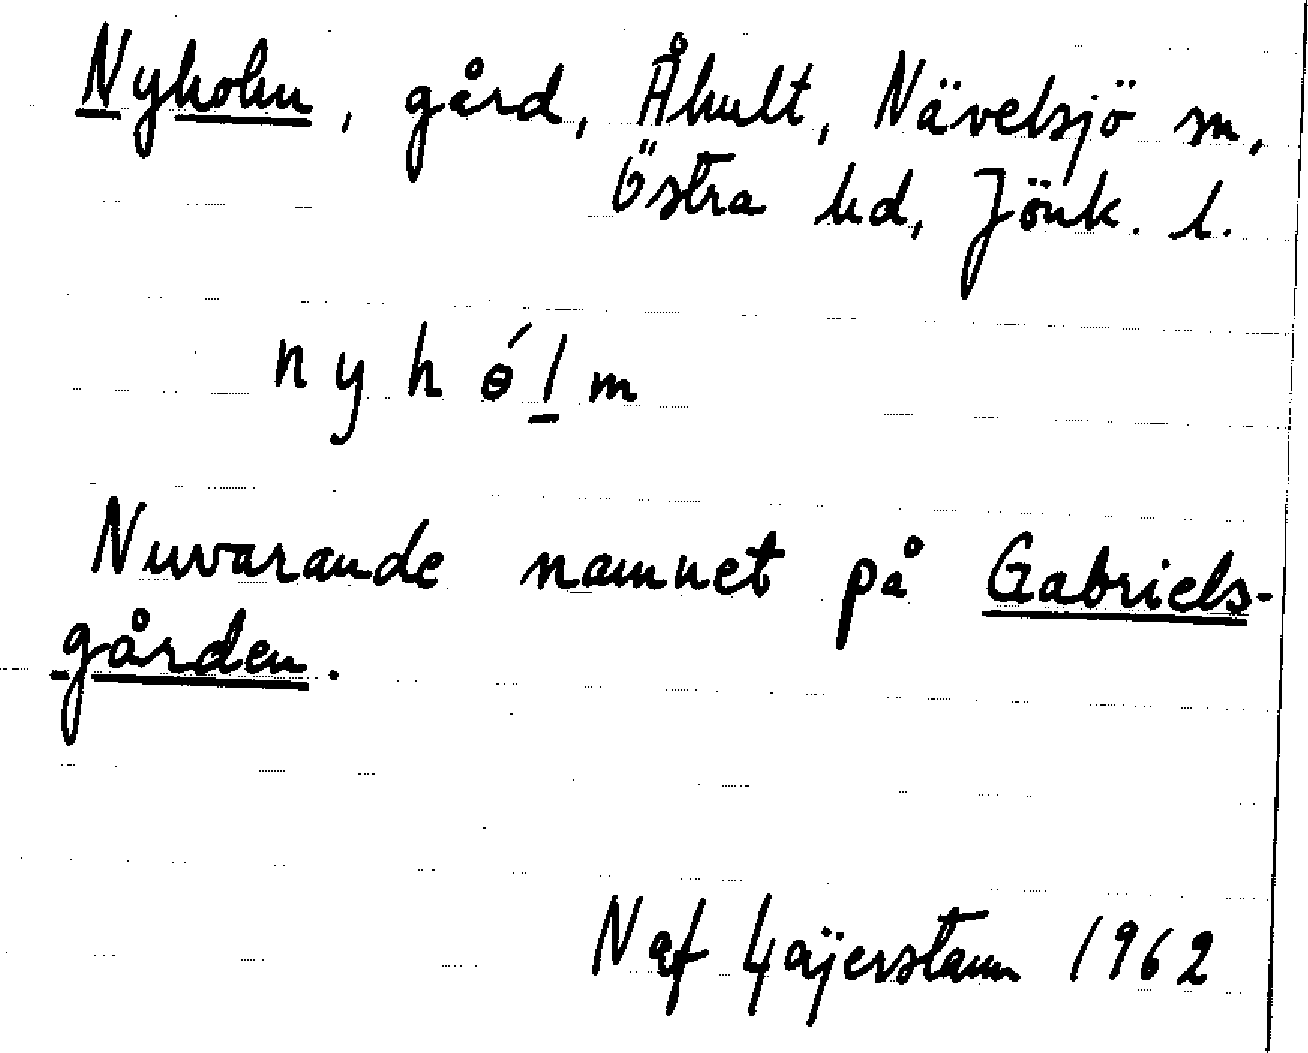 Nyholm, gård, Åhult, Nävelsjö sn,
Östra hd, Jönk. l.
n y h ɵ́ l m
Nuvarande namnet på Gabriels-
gården.
N af 1962